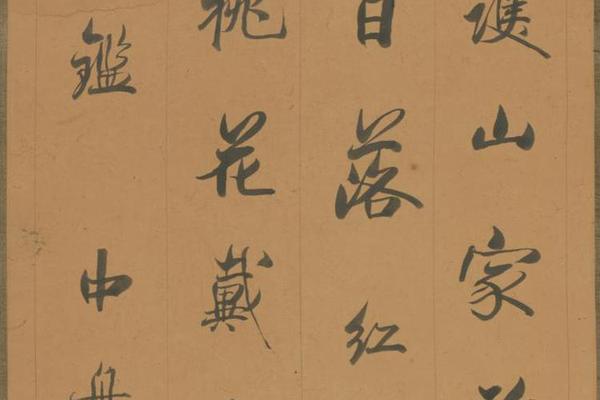 山家
日落红
桃花戴
鑑中舟